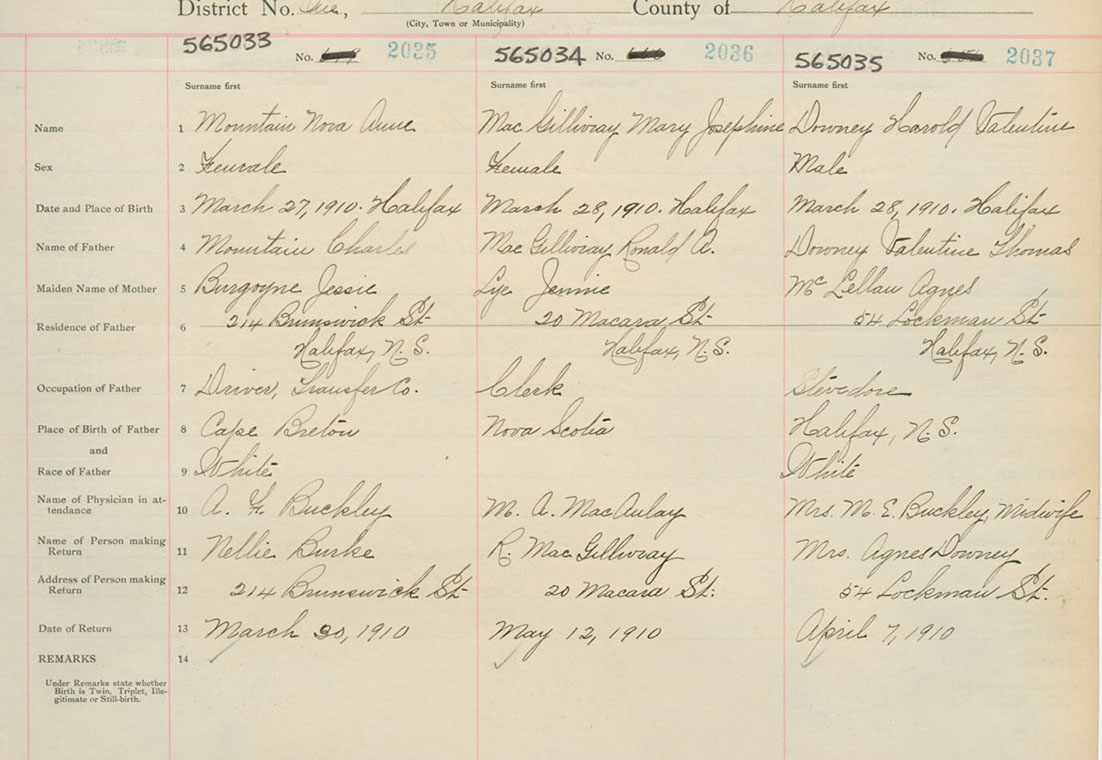 District No. Five, Halifax County of Halifax
(City, Town or Municipality)
565033 No. 2035 565034 No. 2036 565035 No. 2037
Surname first Surname first Surname first
Name 1 Mountain Nova Anne Mac Gillivray Mary Josephine Downey Harold Valentine
Sex 2 Female Female Male
Date and Place of Birth 3 March 27, 1910. Halifax March 28, 1910. Halifax March 28, 1910. Halifax
Name of Father 4 Mountain Charles Mac Gillivray Ronald A. Downey Valentine Thomas
Maiden Name of Mother 5 Burgoyne Jessie Lye Jennie Mc Lellan Agnes
Residence of Father 6 214 Brunswick St. 20 Macara St. 54 Lockman St.
Halifax, N.S. Halifax, N.S. Halifax, N.S.
Occupation of Father 7 Driver, Transfer Co. Clerk Stevedore
Place of Birth of Father 8 Cape Breton Nova Scotia Halifax, N.S.
and
Race of Father 9 White White
Name of Physician in at-
tendance 10 A. F. Buckley M. A. MacAulay Mrs. M. E. Buckley, Midwife
Name of Person making
Return 11 Nellie Burke R. MacGillivray Mrs. Agnes Downey
Address of Person making
Return 12 214 Brunswick St. 20 Macara St. 54 Lockman St.
Date of Return 13 March 30, 1910 May 12, 1910 April 7, 1910
REMARKS 14
Under Remarks state whether
Birth is Twin. Triplet, Ille-
gitimate or Still-birth.